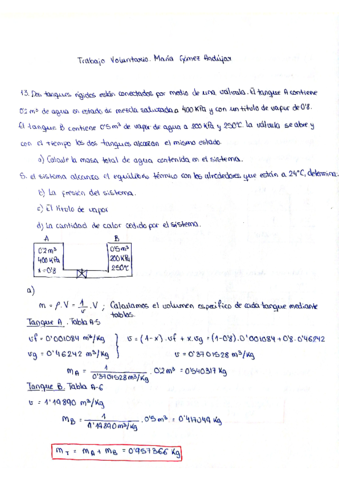 Trabajo Voluntario. María Gómez Andújar
13. Dos tanques rígidos están conectados por medio de una válvula. El tanque A contiene
0'2 m³ de agua en estado de mezcla saturada a 400 KPa y con un título de vapor de 0'8.
El tanque B contiene 0'5 m³ de vapor de agua a 200 KPa y 250ºC. La válvula se abre y
con el tiempo los dos tanques alcanzan el mismo estado.
a) Calcule la masa total de agua contenida en el sistema.
Si el sistema alcanza el equilibrio térmico con los alrededores que están a 24ºC, determina:
b) La presión del sistema.
c) El título de vapor
d) La cantidad de calor cedido por el sistema.
A B
0'2 m³ 0'5 m³
400 KPa 200 KPa
x = 0'8 250ºC
a)
m = ρ · V = 1/v · V ; Calculamos el volumen específico de cada tanque mediante
tablas.
Tanque A. Tabla A-5
vf = 0'001084 m³/Kg } v = (1-x) · vf + x · vg = (1-0'8) · 0'001084 + 0'8 · 0'46242
vg = 0'46242 m³/Kg v = 0'3701528 m³/Kg
mA = 1/0'3701528 m³/Kg · 0'2 m³ = 0'540317 Kg
Tanque B. Tabla A-6
v = 1'19890 m³/Kg
mB = 1/1'19890 m³/Kg · 0'5 m³ = 0'417049 Kg
mT = mA + mB = 0'957366 Kg